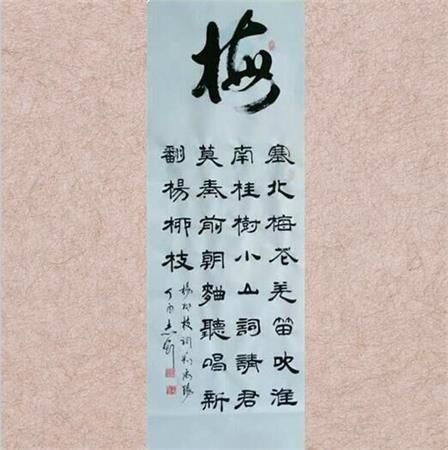 梅
塞北梅花羌笛吹淮
南桂樹小山詞請君
莫奏前朝麯聽唱新
翻楊柳枝
楊柳枝詞劉禹錫
丁酉